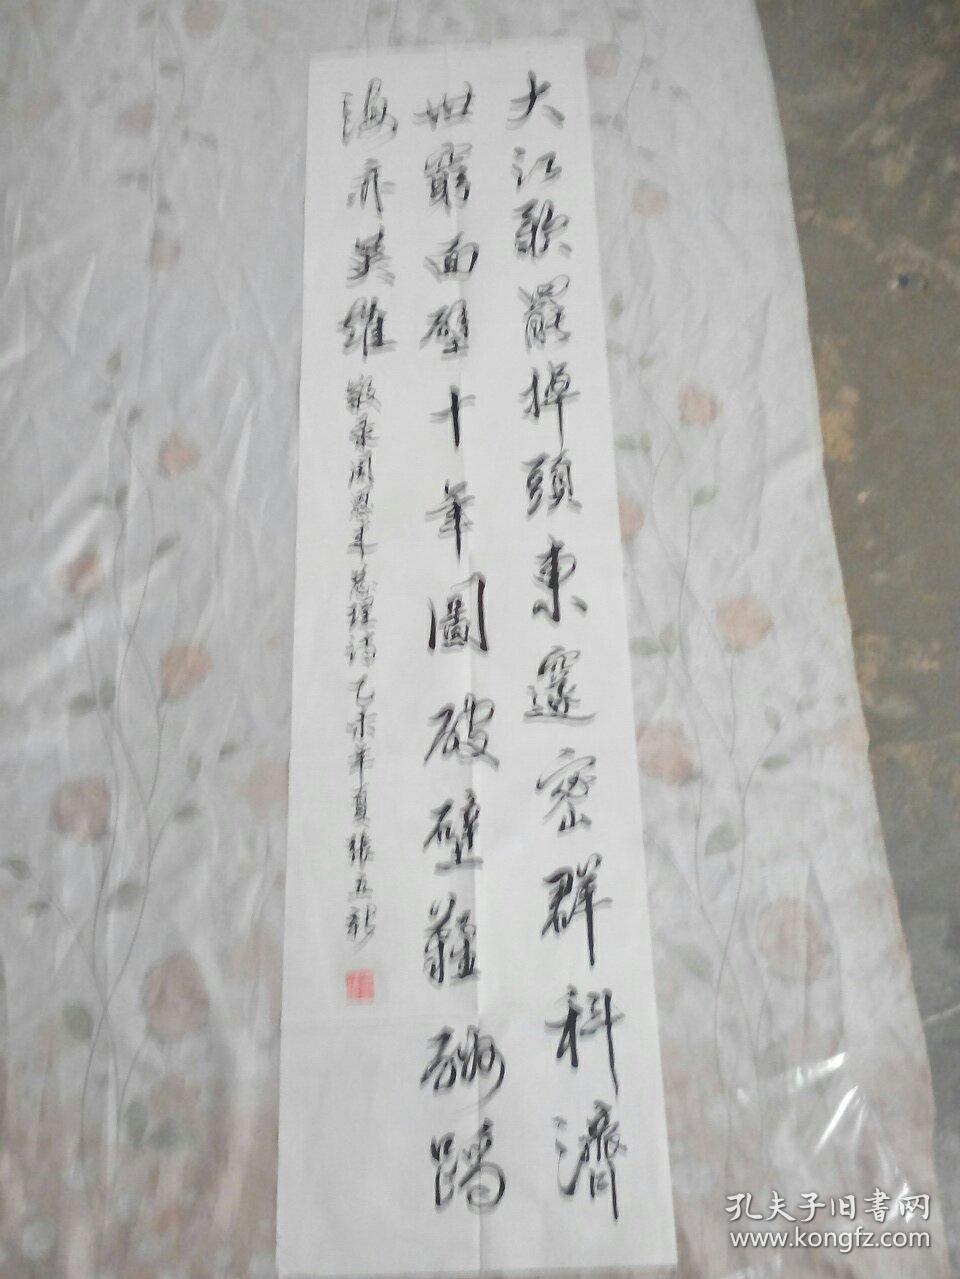 大江歌罷掉頭東邃密群科濟
世窮面壁十年圖破壁難酬蹈
海亦英雄
敬录周恩来总理詩乙未年夏張立新
孔夫子旧书网
www.kongfz.com